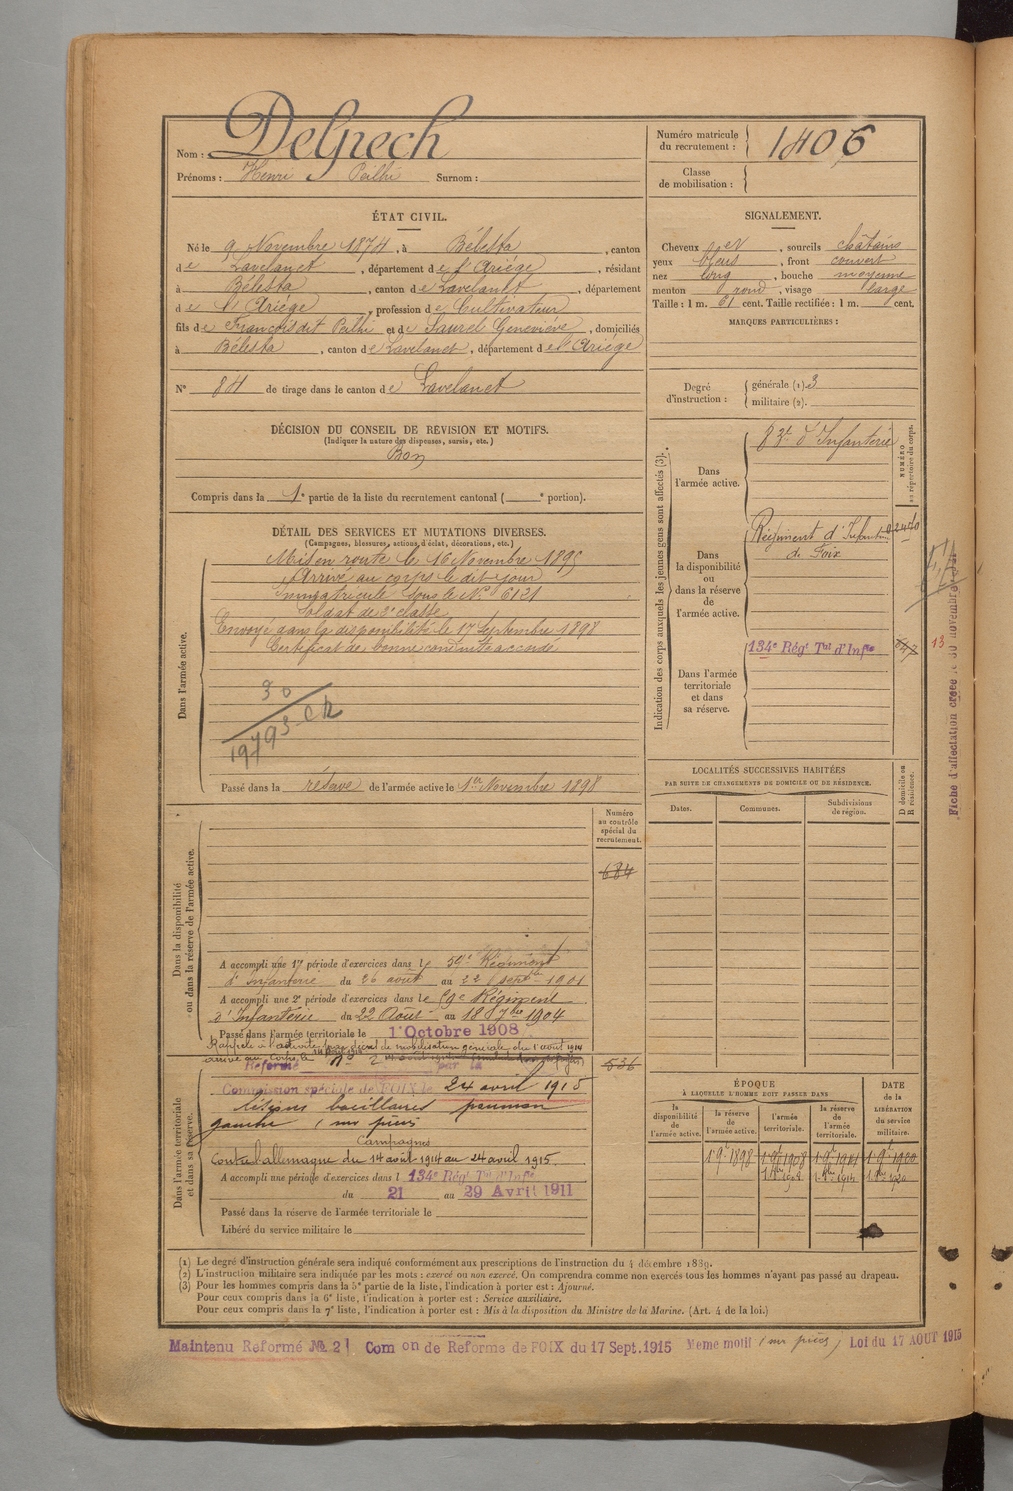 Nom : Delpech
Prénoms : Henri Peilhé Surnom :
Numéro matricule du recrutement : 1406
Classe de mobilisation :
ÉTAT CIVIL.
Né le 9 Novembre 1874, à Bélesta, canton
de Lavelanet, département de l'Ariège, résidant
à Bélesta, canton de Lavelanet, département
de l'Ariège, profession de Cultivateur
fils de François dit Peilhé et de Saurel Geneviève, domiciliés
à Bélesta, canton de Lavelanet, département de l'Ariège
N° 84 de tirage dans le canton de Lavelanet
SIGNALEMENT.
Cheveux et, sourcils châtains
yeux bleus, front couvert
nez long, bouche moyenne
menton rond, visage large
Taille : 1 m. 61 cent. Taille rectifiée : 1 m. cent.
MARQUES PARTICULIÈRES :
Degré d'instruction : générale (1). 3
militaire (2).
DÉCISION DU CONSEIL DE RÉVISION ET MOTIFS.
(Indiquer la nature des dispenses, sursis, etc.)
Bon
Compris dans la 1e partie de la liste du recrutement cantonal ( e portion).
DÉTAIL DES SERVICES ET MUTATIONS DIVERSES.
(Campagnes, blessures, actions d'éclat, décorations, etc.)
Dans l'armée active.
Mis en route le 16 Novembre 1895
Arrivé au corps le dit jour
Immatriculé sous le N° 6121
Soldat de 2e classe
Envoyé dans la disponibilité le 17 Septembre 1898
Certificat de bonne conduite accordé
30
Passé dans la réserve de l'armée active le 1er Novembre 1898
Indication des corps auxquels les jeunes gens sont affectés (3).
NUMÉRO au répertoire du corps.
Dans l'armée active.
d'Infanterie
Dans la disponibilité ou dans la réserve de l'armée active.
Régiment d'Infanterie
de Foix
Dans l'armée territoriale et dans sa réserve.
134e Régt Tial d'Infie
647
13
Fiche d'affectation créée le 30 novembre
LOCALITÉS SUCCESSIVES HABITÉES
PAR SUITE DE CHANGEMENTS DE DOMICILE OU DE RÉSIDENCE.
Dates. Communes. Subdivisions de région. D domicile ou R résidence.
Dans la disponibilité ou dans la réserve de l'armée active.
Numéro au contrôle spécial du recrutement.
684
A accompli une 1re période d'exercices dans le 59e Régiment
d'Infanterie du 26 août au 22 septbre 1901
A accompli une 2e période d'exercices dans le 59e Régiment
d'Infanterie du 22 Août au 18 7bre 1904
Passé dans l'armée territoriale le 1er Octobre 1908
Dans l'armée territoriale et dans sa réserve.
Rappelé à l'activité décret de mobilisation générale du 1er août 1914
arrivé au corps le
536
Réformé N° 2 par la
Commission spéciale de FOIX le 24 avril 1915
lésions bacillaires poumon
gauche
Campagnes
Contre l'allemagne du 14 août 1914 au 24 avril 1915.
A accompli une période d'exercices dans l 134e Régt Tial d'Infie
du 21 au 29 Avril 1911
Passé dans la réserve de l'armée territoriale le
Libéré du service militaire le
ÉPOQUE
À LAQUELLE L'HOMME DOIT PASSER DANS
la disponibilité de l'armée active. la réserve de l'armée active. l'armée territoriale. la réserve de l'armée territoriale. DATE de la LIBÉRATION du service militaire.
(1) Le degré d'instruction générale sera indiqué conformément aux prescriptions de l'instruction du 4 décembre 1889.
(2) L'instruction militaire sera indiquée par les mots : exercé ou non exercé. On comprendra comme non exercés tous les hommes n'ayant pas passé au drapeau.
(3) Pour les hommes compris dans la 5e partie de la liste, l'indication à porter est : Ajourné.
Pour ceux compris dans la 6e liste, l'indication à porter est : Service auxiliaire.
Pour ceux compris dans la 7e liste, l'indication à porter est : Mis à la disposition du Ministre de la Marine. (Art. 4 de la loi.)
Maintenu Reformé № 2 Com on de Reforme de FOIX du 17 Sept. 1915 Meme motif (sur pièces) Loi du 17 AOUT 1915